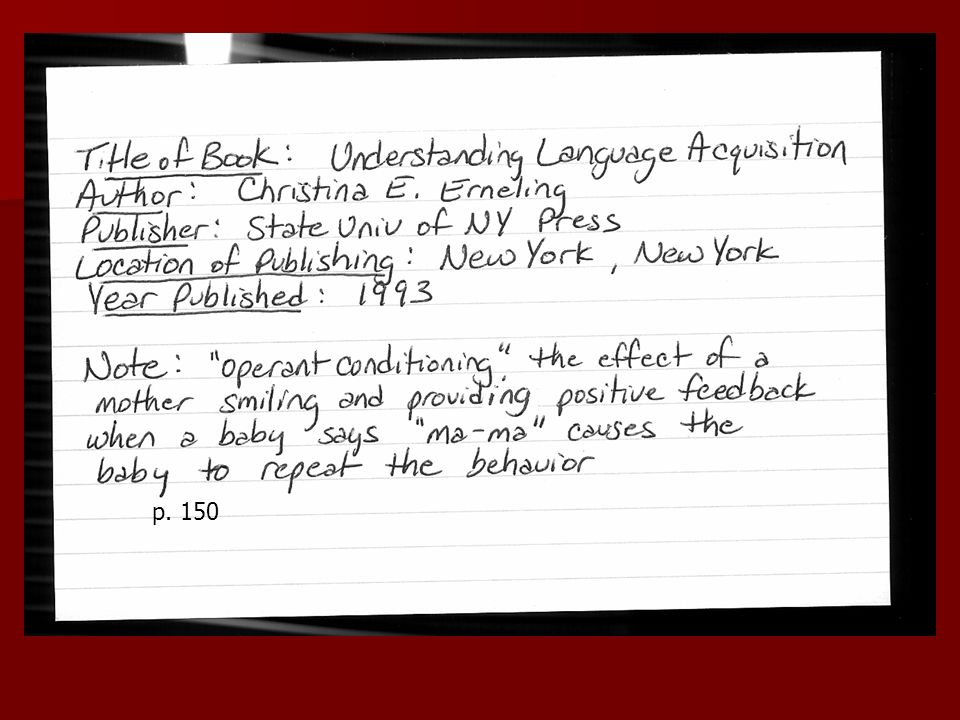 Title of Book: Understanding Language Acquisition
Author: Christina E. Erneling
Publisher: State Univ of NY Press
Location of Publishing: New York, New York
Year Published: 1993
Note: "operant conditioning" the effect of a
mother smiling and providing positive feedback
when a baby says "ma-ma" causes the
baby to repeat the behavior
p. 150